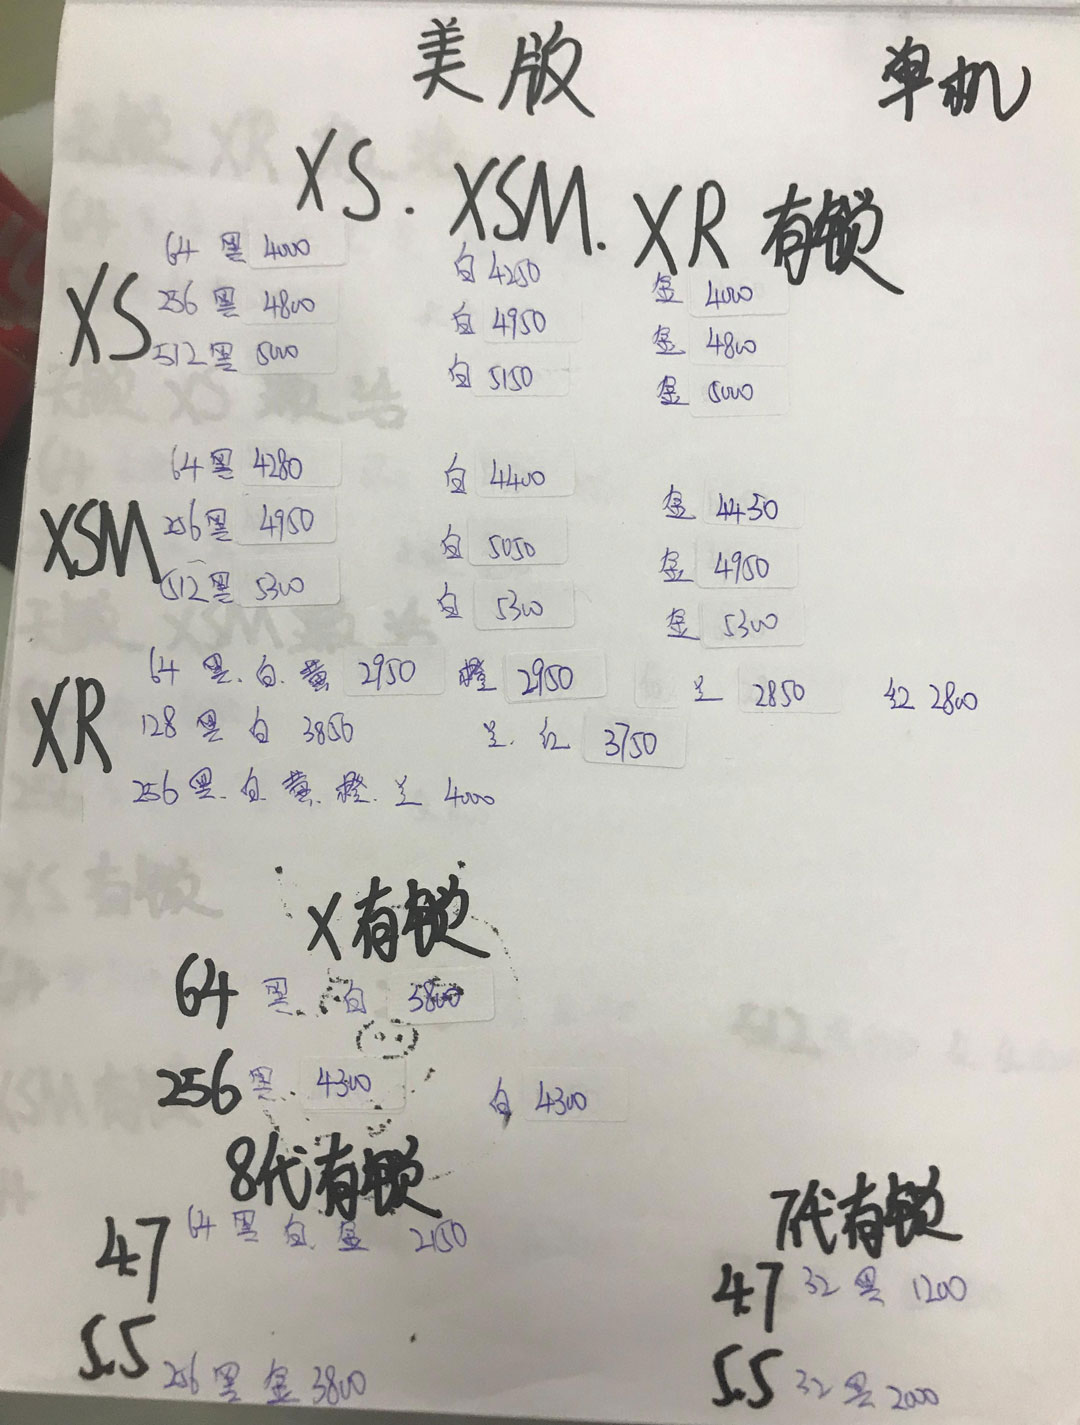 美版 单机
XS. XSM. XR 有锁
XS
64 黑 4000 白 4250 金 4000
256 黑 4800 白 4950 金 4800
512 黑 5000 白 5150 金 5000
XSM
64 黑 4280 白 4400 金 4450
256 黑 4950 白 5050 金 4950
512 黑 5300 白 5300 金 5300
XR
64 黑.白.黄 2950 橙 2950 兰 2850 红 2800
128 黑 白 3850 兰.红 3750
256 黑.白.黄.橙.兰 4000
X有锁
64 黑. 白 3800
256 黑. 4300 白 4300
8代有锁
47 64 黑 白. 金 2150
5.5 256 黑 金 3800
7代有锁
47 32 黑 1200
5.5 32 黑 2000